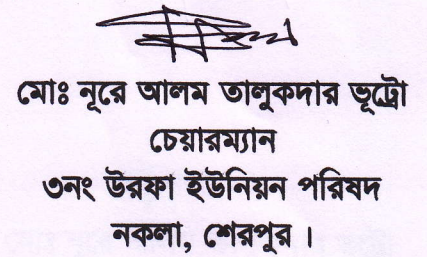 মোঃ নূরে আলম তালুকদার ভূট্টো
চেয়ারম্যান
৩নং উরফা ইউনিয়ন পরিষদ
নকলা, শেরপুর।